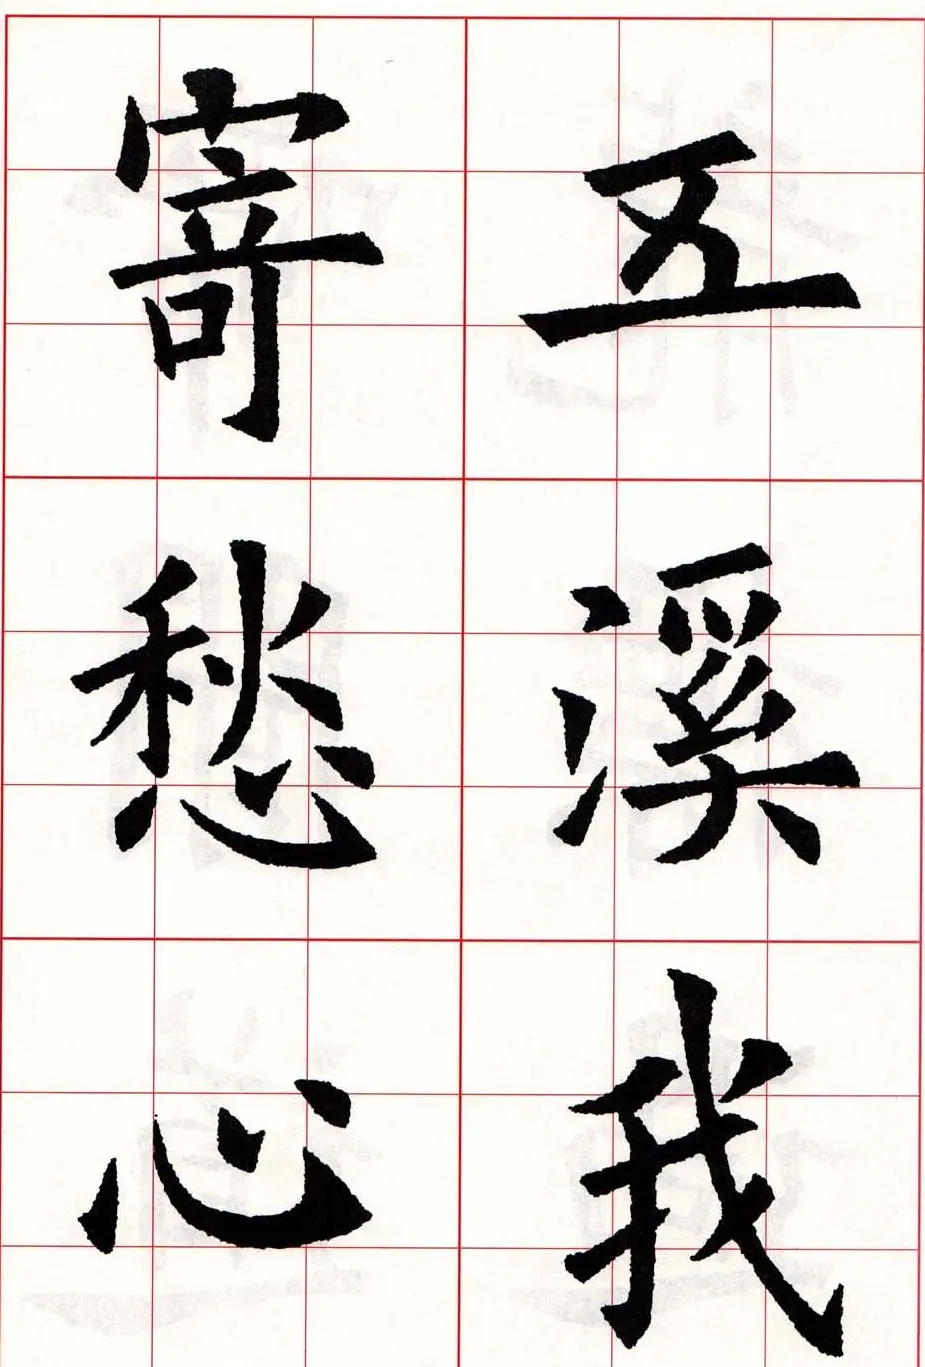 五溪我
寄愁心